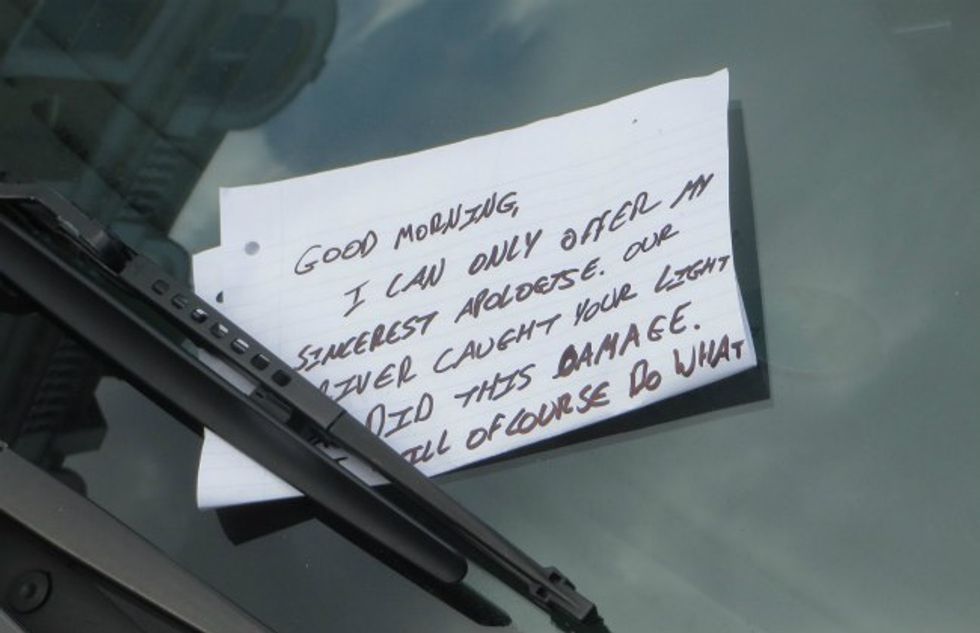 GOOD MORNING,
I CAN ONLY OFFER MY
SINCEREST APOLOGISE. OUR
RIVER CAUGHT YOUR LIGHT
DID THIS DAMAGE.
ILL OFCOURSE DO WHAT